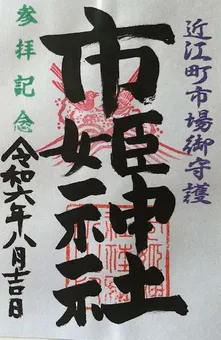 近江町市場御守護
市姫神社
参拝記念
令和六年八月吉日